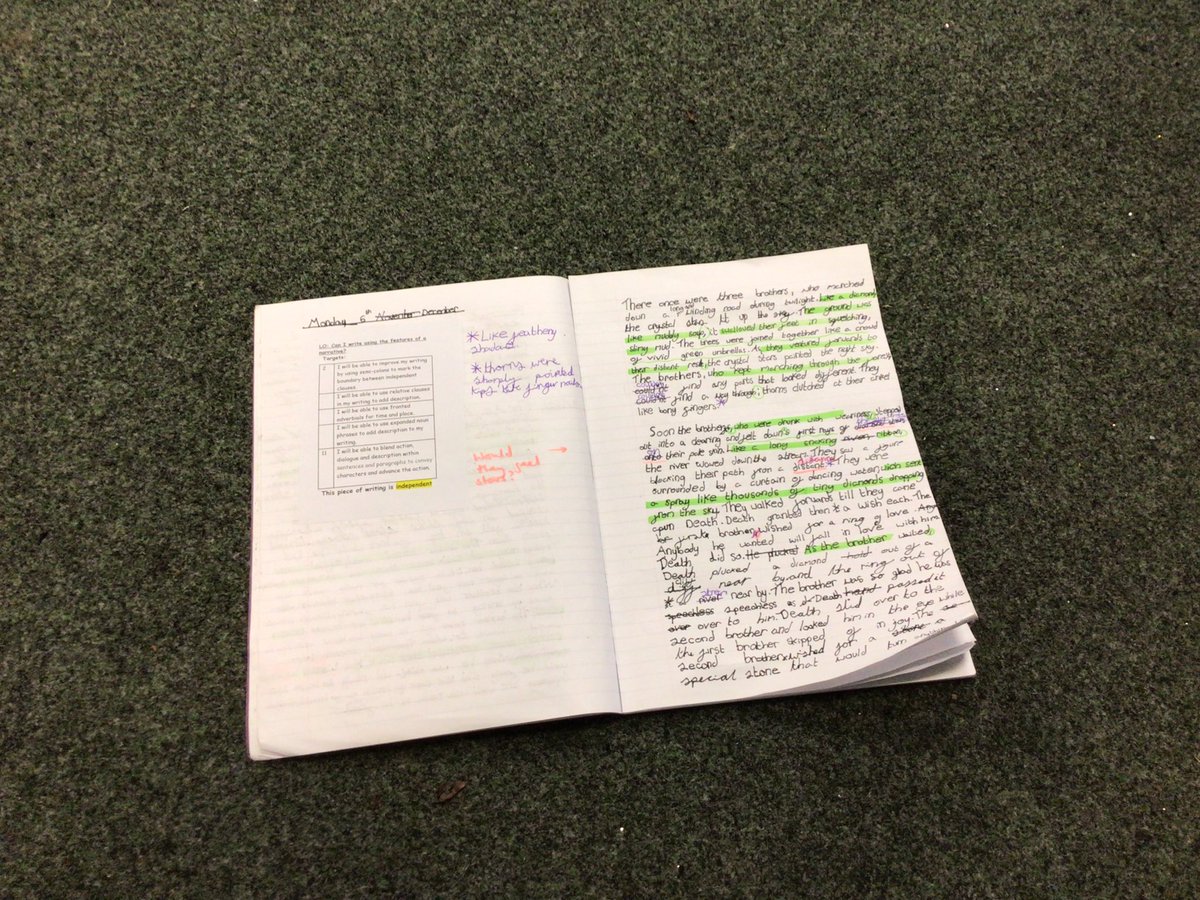 Monday 6th November December
LO: Can I write using the features of a
narrative?
Targets:
2 I will be able to improve my writing
by using semi-colons to mark the
boundary between independent
clauses.
I will be able to use relative clauses
in my writing to add description.
I will be able to use fronted
adverbials for time and place.
I will be able to use expanded noun
phrases to add description to my
writing.
I will be able to blend action,
dialogue and description within
sentences and paragraphs to convey
characters and advance the action.
This piece of writing is independent
*Like feathery
*thorns were
sharply pointed
like finger
Would
they feel
There once were three brothers, who marched
down a winding road during twilight. Like a diamond
the crystal stars lit up the sky. The ground was
like muddy soup; it swallowed their feet in squelching,
slimy mud. The trees were joined together like a crowd
of vivid green umbrellas. As they ventured forwards to
their distant rest, the crystal stars painted the night sky.
The brothers, who kept marching through the forest,
find any paths that looked different. They
could find a way through; thorns clutched at their ankel
like bony fingers.*
Soon the brothers, who were drunk with weariness, stepped
out into a clearing and felt down's first rays of
onto their pale skin. Like a long snaking ribbon,
the river waved down the stream. They saw a figure
blocking their path from a distant * They were
surrounded by a curtain of dancing water, wich sent
a spray like thousands of tiny diamonds dropping
from the sky. They walked forwards till they came
apon Death. Death granted then * a wish each. The
brother wished for a ring of love.
Anybody he wanted will fall in love with him
Death did so. He plucked As the brother waited,
Death plucked a diamond out of a
near by and the ring out of
* a near by. The brother was so glad he was
speechless speechless as Death passed it
over over to him. Death slid over to the
second brother and looked him in the eye while
the first brother skipped of in joy. The
second brother wished for a stone a
special stone that would turn